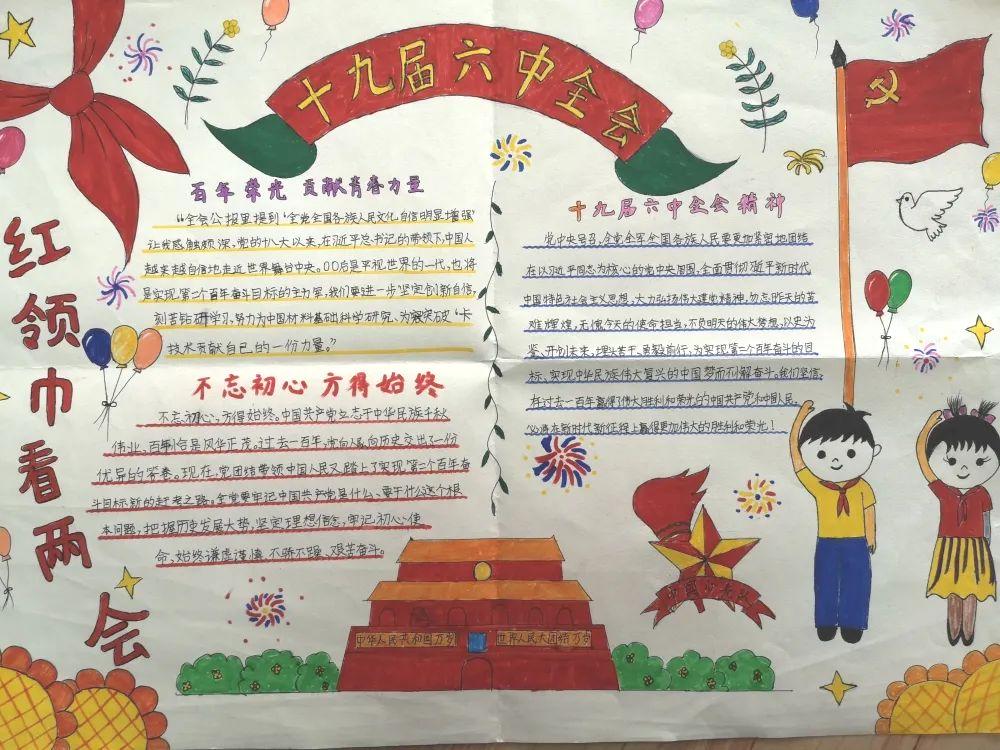 十九届六中全会
红领巾看两会
百年荣光 贡献青春力量
“全会公报里提到‘全党全国各族人民文化自信明显增强’
让我感触颇深,党的十八大以来,在习近平总书记的带领下,中国人
越来越自信地走近世界舞台中央。00后是平视世界的一代,也将
是实现第二个百年奋斗目标的主力军,我们要进一步坚定创新自信,
刻苦钻研学习,努力为中国材料基础科学研究、为突破“卡
技术贡献自己的一份力量。”
不忘初心 方得始终
不忘初心,方得始终。中国共产党立志于中华民族千秋
伟业,百年恰是风华正茂。过去一百年,党向人民向历史交出了一份
优异的答卷。现在,党团结带领中国人民又踏上了实现第二个百年奋
斗目标新的赶考之路。全党要牢记中国共产党是什么、要干什么这个根
本问题,把握历史发展大势,坚定理想信念,牢记初心使
命,始终谦虚谨慎、不骄不躁、艰苦奋斗。
十九届六中全会精神
党中央号召,全党全军全国各族人民要更加紧密地团结
在以习近平同志为核心的党中央周围,全面贯彻习近平新时代
中国特色社会主义思想,大力弘扬伟大建党精神,勿忘昨天的苦
难辉煌,无愧今天的使命担当,不负明天的伟大梦想,以史为
鉴、开创未来,埋头苦干、勇毅前行,为实现第二个百年奋斗的目
标、实现中华民族伟大复兴的中国梦而不懈奋斗。我们坚信,
在过去一百年赢得了伟大胜利和荣光的中国共产党和中国人民,
必将在新时代新征程上赢得更加伟大的胜利和荣光!
中国少先队
中华人民共和国万岁
世界人民大团结万岁